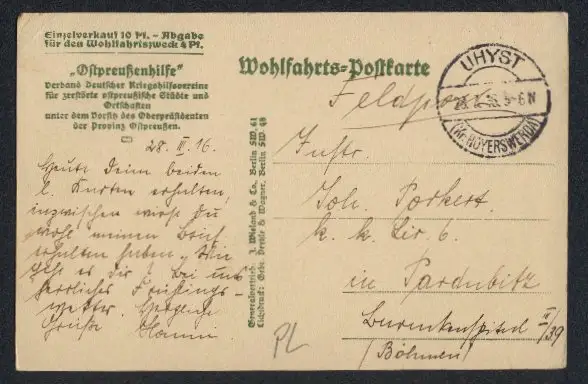 Einzelverkauf 10 Pf. - Abgabe
für den Wohlfahrtszweck 4 Pf.
„Ostpreußenhilfe"
Verband Deutscher Kriegshilfsvereine
für zerstörte ostpreußische Städte und
Ortschaften
unter dem Vorsitz des Oberpräsidenten
der Provinz Ostpreußen.
28. III. 16.
Heute Deine beiden
l. Karten erhalten,
inzwischen wirst Du
wohl meinen Brief
erhalten haben. Wie
geht es dir? Bei uns
herrliches Frühlings-
wetter. Herzliche
Grüße Hanni
Generalvertrieb: J. Wieland & Co., Berlin SW. 61
Lichtdruck: Gebr. Dreuke & Wagner, Berlin SW. 48
Wohlfahrts-Postkarte
Feldpost
UHYST
5-6 N
(Kr. HOYERSWERDA)
Instr.
Joh. Porkert
k. k. Lir 6.
in Pardubitz
II/39
(Böhmen)
PL